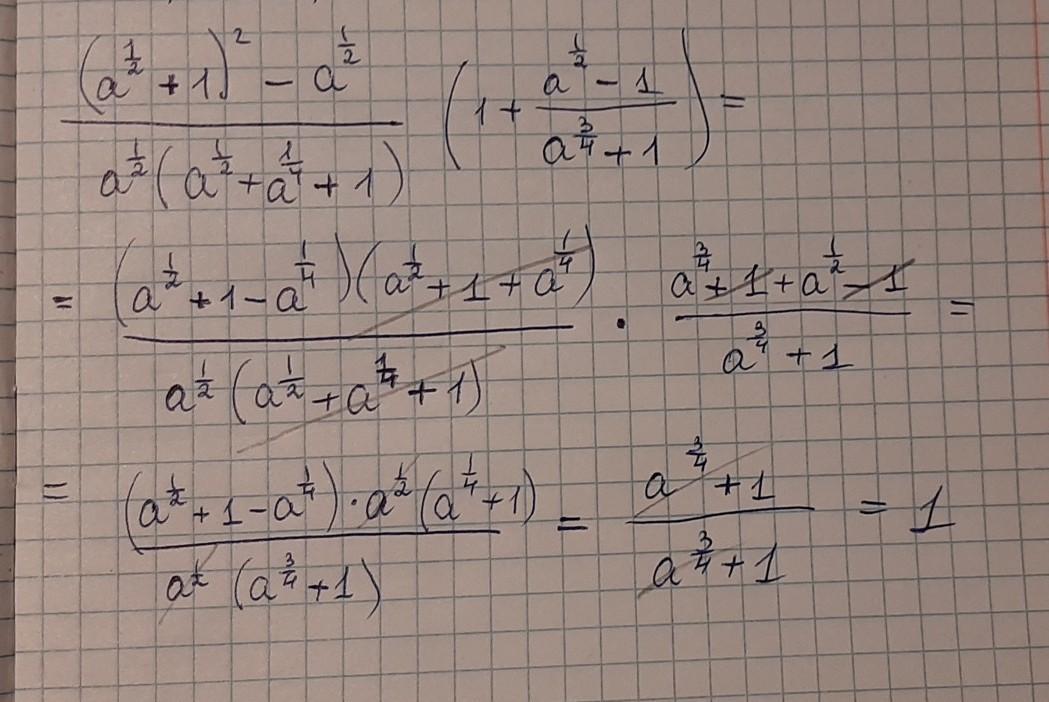 ((a^{1/2} + 1)^2 - a^{1/2}) / (a^{1/2}(a^{1/2} + a^{1/4} + 1)) (1 + (a^{1/2} - 1) / (a^{3/4} + 1)) =
= ((a^{1/2} + 1 - a^{1/4})(a^{1/2} + 1 + a^{1/4})) / (a^{1/2}(a^{1/2} + a^{1/4} + 1)) · (a^{3/4} + 1 + a^{1/2} - 1) / (a^{3/4} + 1) =
= ((a^{1/2} + 1 - a^{1/4}) · a^{1/2}(a^{1/4} + 1)) / (a^{1/2}(a^{3/4} + 1)) = (a^{3/4} + 1) / (a^{3/4} + 1) = 1